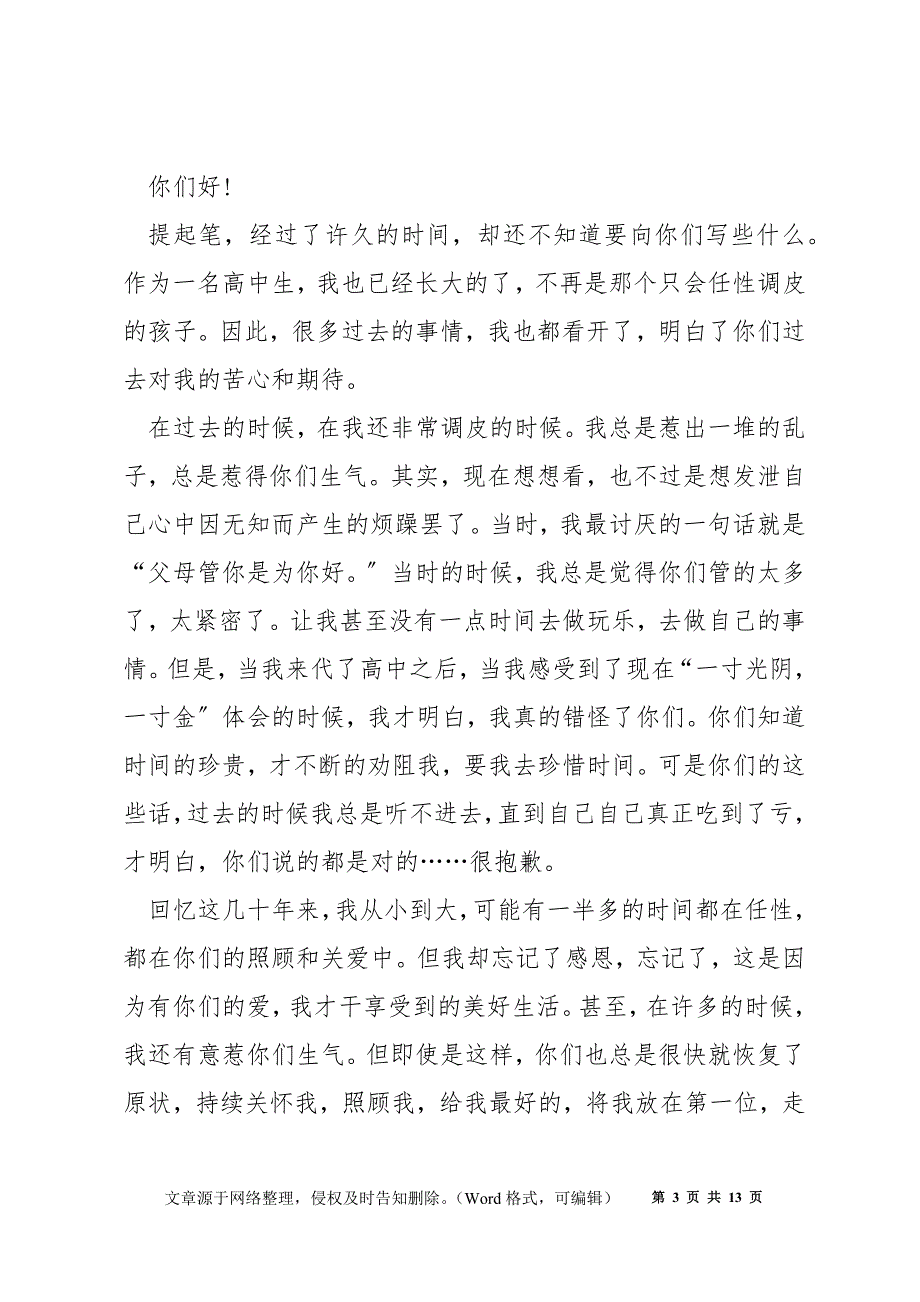 你们好!
提起笔，经过了许久的时间，却还不知道要向你们写些什么。
作为一名高中生，我也已经长大的了，不再是那个只会任性调皮
的孩子。因此，很多过去的事情，我也都看开了，明白了你们过
去对我的苦心和期待。
在过去的时候，在我还非常调皮的时候。我总是惹出一堆的乱
子，总是惹得你们生气。其实，现在想想看，也不过是想发泄自
己心中因无知而产生的烦躁罢了。当时，我最讨厌的一句话就是
“父母管你是为你好。〞当时的时候，我总是觉得你们管的太多
了，太紧密了。让我甚至没有一点时间去做玩乐，去做自己的事
情。但是，当我来代了高中之后，当我感受到了现在“一寸光阴，
一寸金〞体会的时候，我才明白，我真的错怪了你们。你们知道
时间的珍贵，才不断的劝阻我，要我去珍惜时间。可是你们的这
些话，过去的时候我总是听不进去，直到自己自己真正吃到了亏，
才明白，你们说的都是对的……很抱歉。
回忆这几十年来，我从小到大，可能有一半多的时间都在任性，
都在你们的照顾和关爱中。但我却忘记了感恩，忘记了，这是因
为有你们的爱，我才干享受到的美好生活。甚至，在许多的时候，
我还有意惹你们生气。但即使是这样，你们也总是很快就恢复了
原状，持续关怀我，照顾我，给我最好的，将我放在第一位，走
文章源于网络整理，侵权及时告知删除。（Word 格式，可编辑） 第 3 页 共 13 页